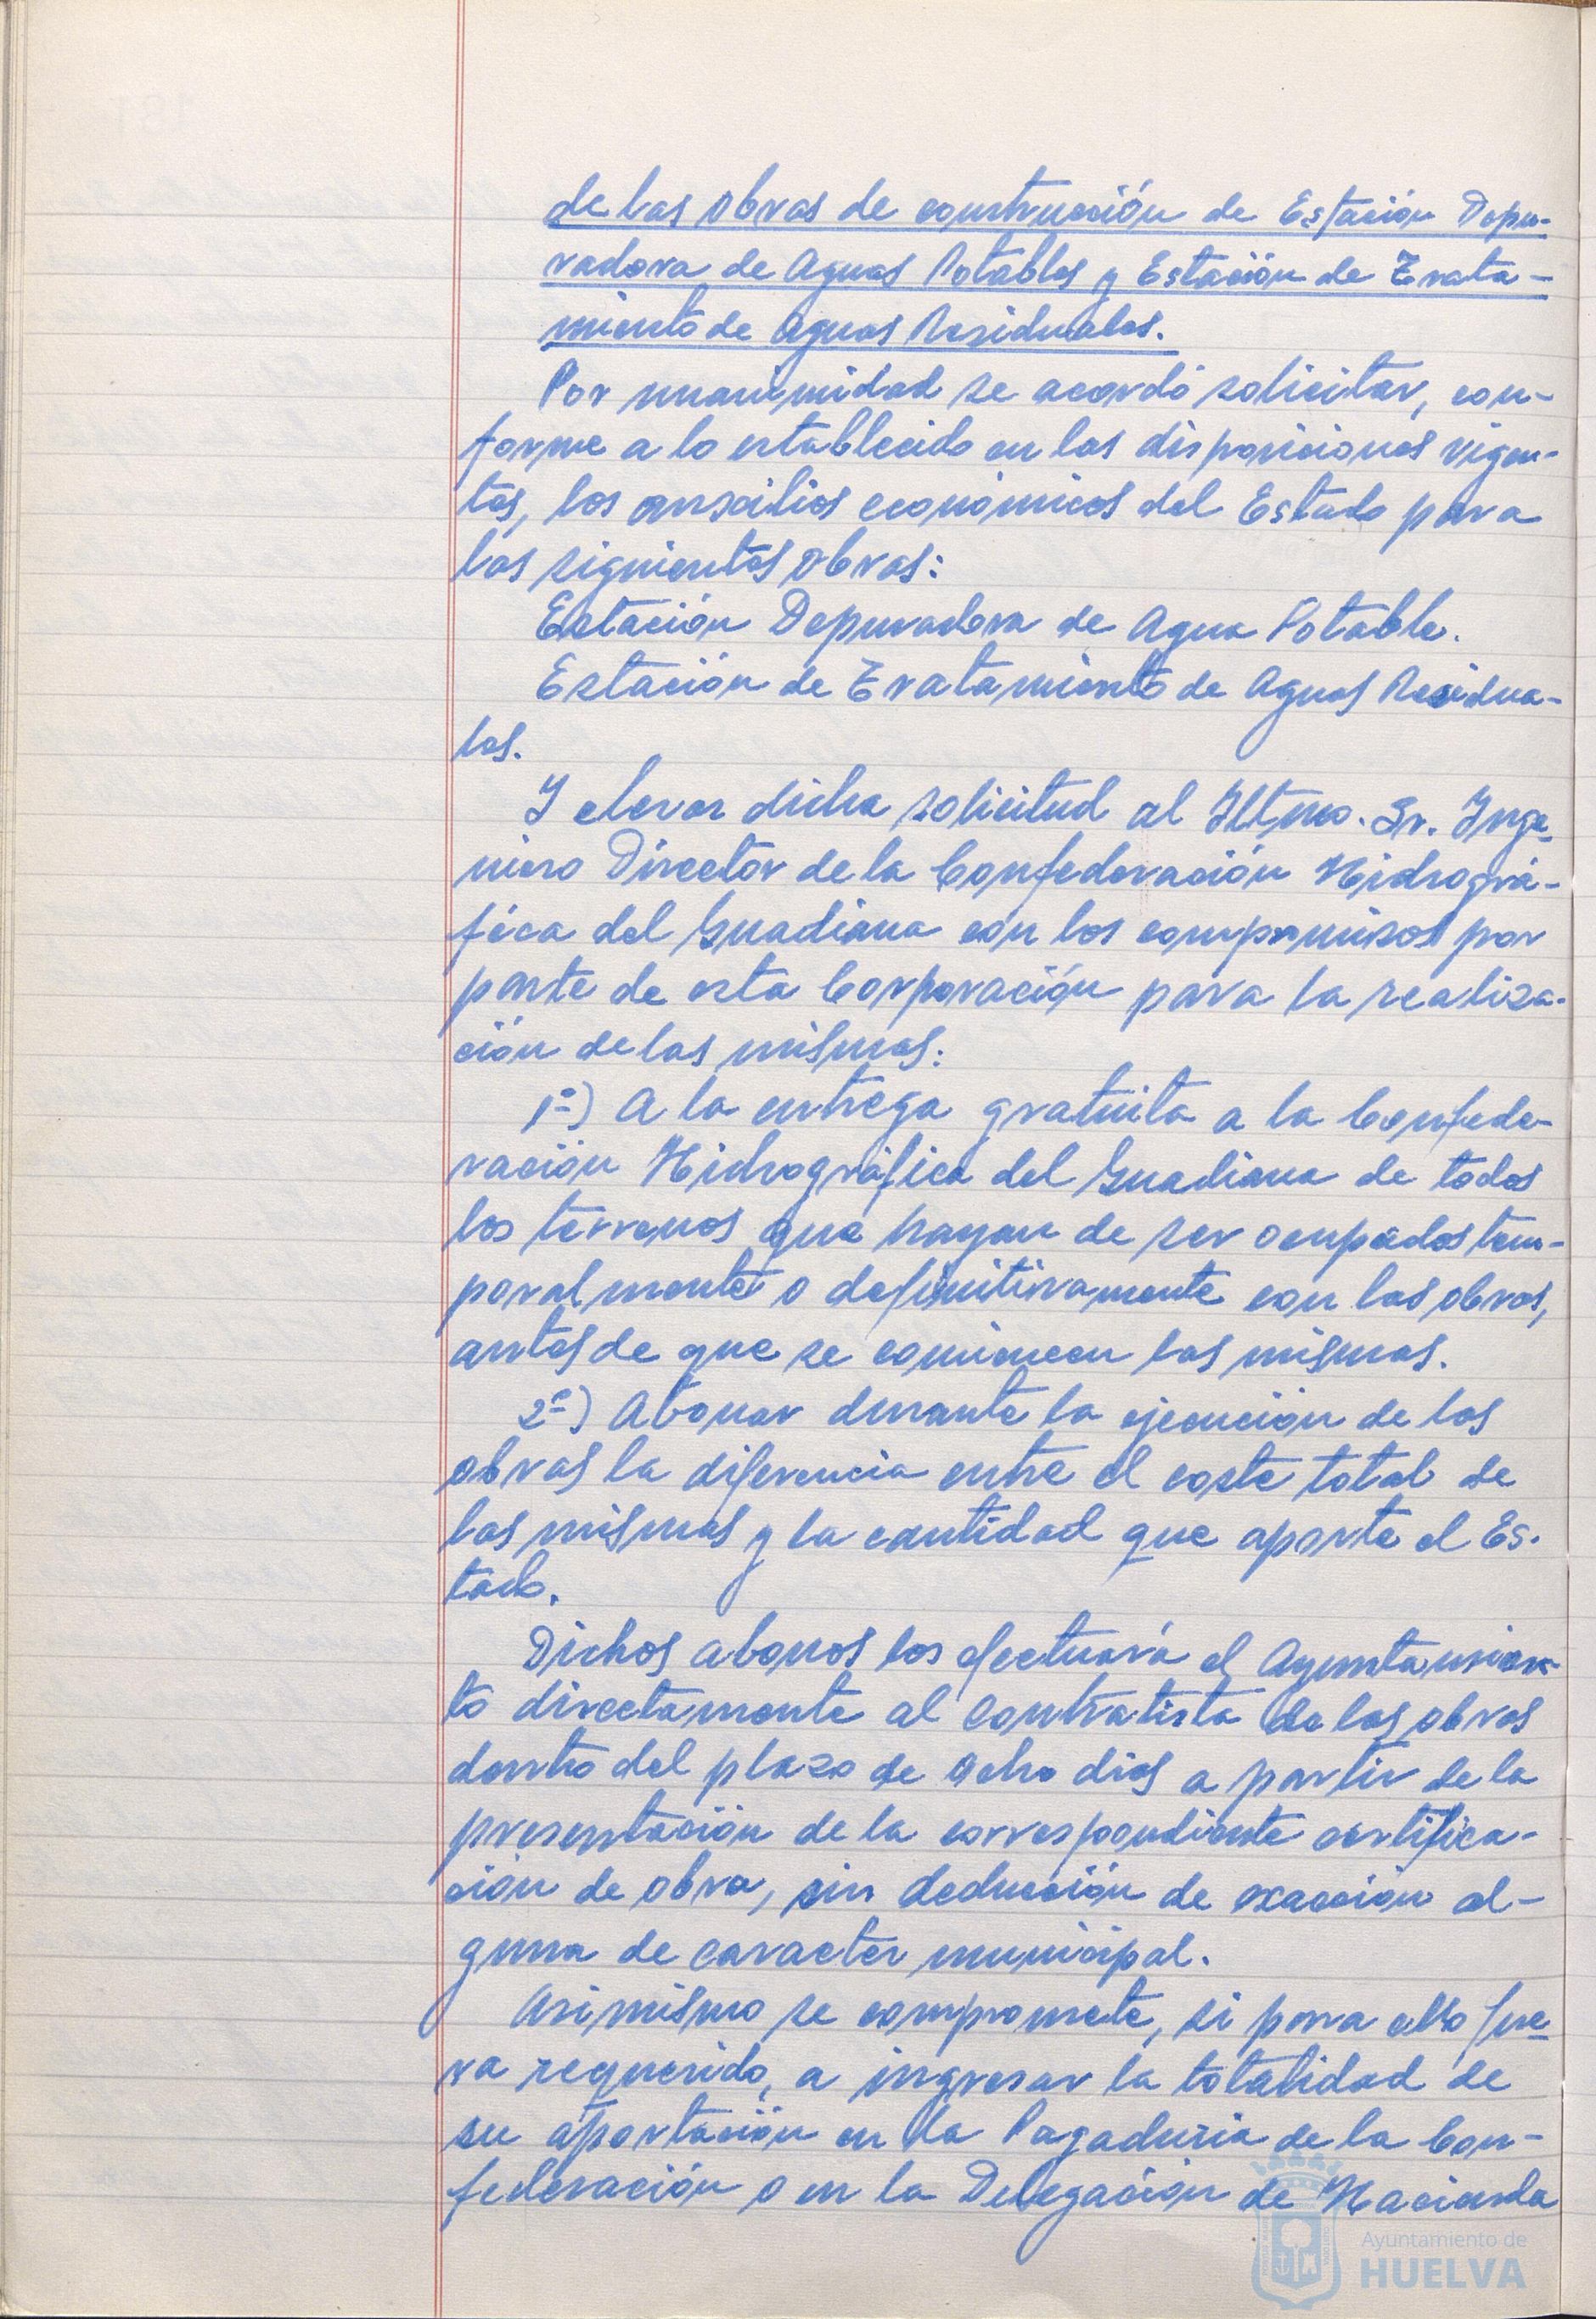 de las obras de construcción de Estación Depu-
radora de Aguas Potables y Estación de Trata-
miento de Aguas Residuales.
Por unanimidad se acordó solicitar, con-
forme a lo establecido en las disposiciones vigen-
tes, los auxilios económicos del Estado para
las siguientes obras:
Estación Depuradora de Agua Potable.
Estación de Tratamiento de Aguas Residua-
les.
Y elevar dicha solicitud al Iltmo. Sr. Inge-
niero Director de la Confederación Hidrográ-
fica del Guadiana con los compromisos por
parte de esta Corporación para la realiza-
ción de las mismas:
1º) A la entrega gratuita a la Confede-
ración Hidrográfica del Guadiana de todos
los terrenos que hayan de ser ocupados tem-
poralmente o definitivamente con las obras,
antes de que se comiencen las mismas.
2º) Abonar durante la ejecución de las
obras la diferencia entre el coste total de
las mismas y la cantidad que aporte el Es-
tado.
Dichos abonos los efectuará el Ayuntamien-
to directamente al Contratista de las obras
dentro del plazo de ocho dias a partir de la
presentación de la correspondiente certifica-
ción de obra, sin deducción de exacción al-
guna de caracter municipal.
Asimismo se compromete, si para ello fue-
ra requerido, a ingresar la totalidad de
su aportación en la Pagaduria de la Con-
federación o en la Delegación de Hacienda
Ayuntamiento de
HUELVA